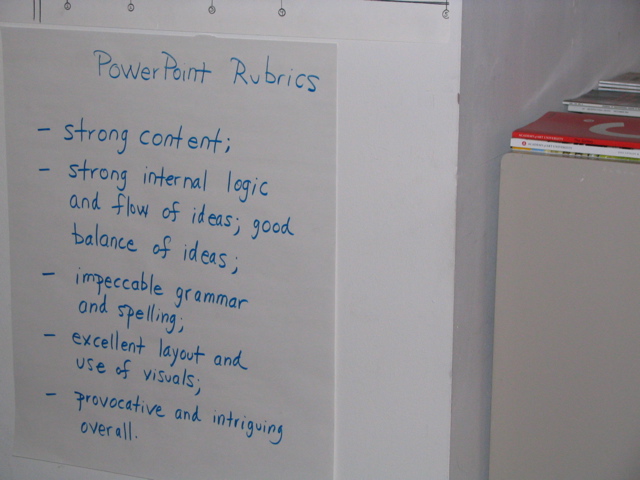 PowerPoint Rubrics
- strong content;
- strong internal logic
and flow of ideas; good
balance of ideas;
- impeccable grammar
and spelling;
- excellent layout and
use of visuals;
- provocative and intriguing
overall.